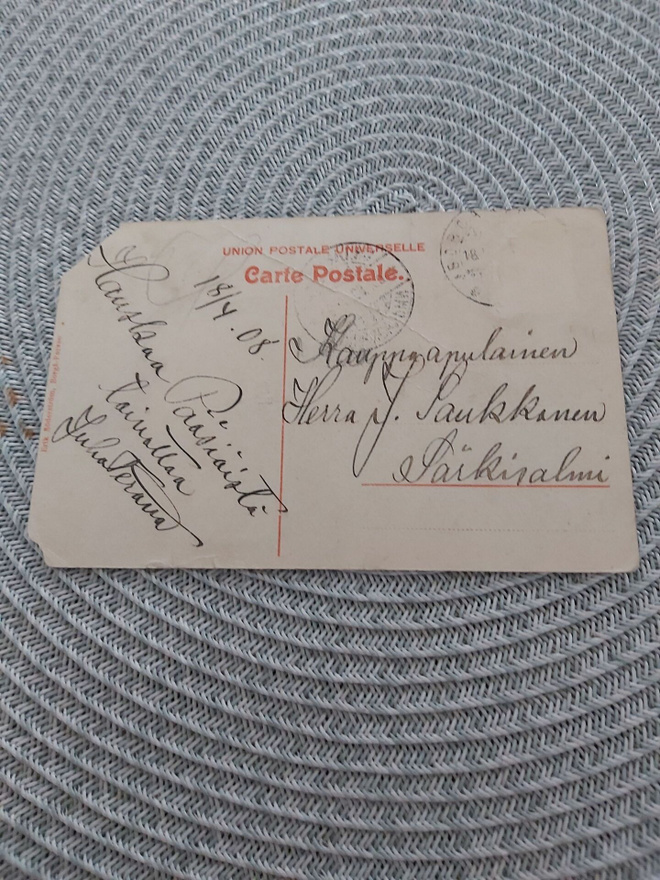 UNION POSTALE UNIVERSELLE
Carte Postale.
18/4.08.
Hauskaa
Pääsiäistä
toivottaa
Kauppaapulainen
Herra J. Paukkonen
Särkisalmi